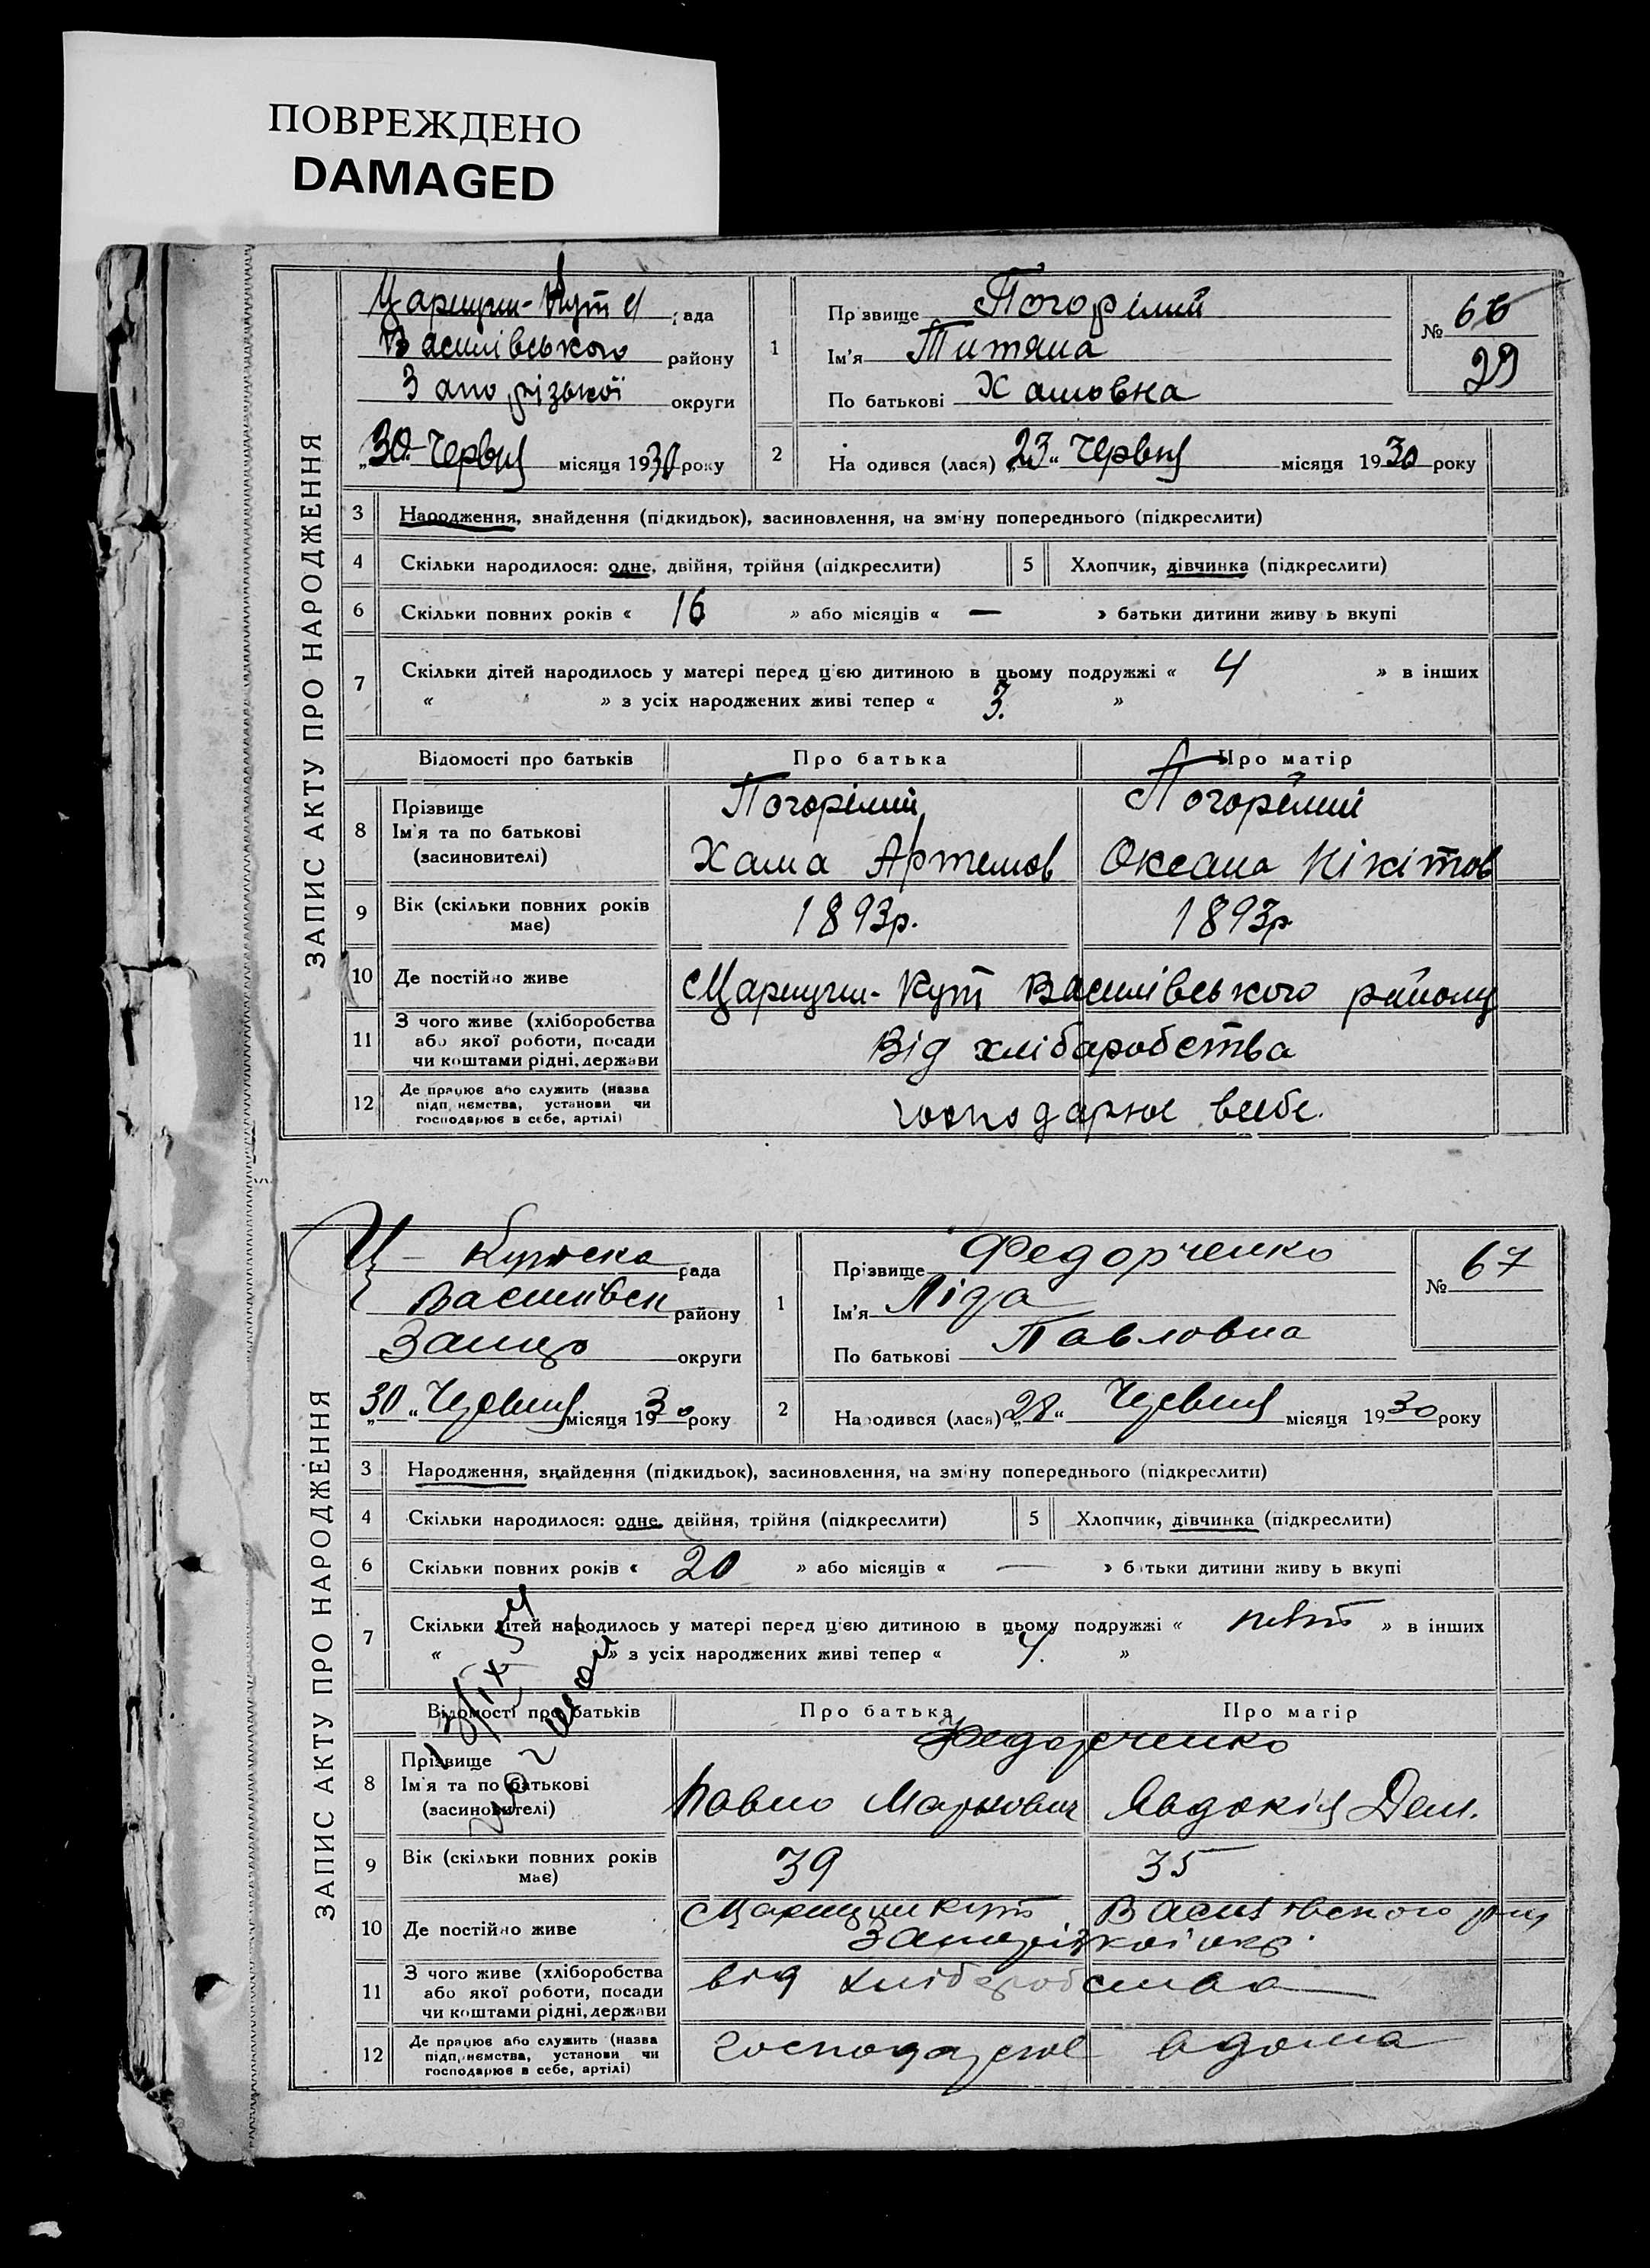 ПОВРЕЖДЕНО
DAMAGED
ЗАПИС АКТУ ПРО НАРОДЖЕННЯ
Царицин-Кут рада
Василівського району
Запорізької округи
„30“ Червня місяця 1930 року
1 Прізвище Погорілий
Ім'я Титяна
По батькові Хамовна
№ 66
29
2 Народився (лася) „23“ Червня місяця 1930 року
3 Народження, знайдення (підкидьок), засиновлення, на зміну попереднього (підкреслити)
4 Скільки народилося: одне, двійня, трійня (підкреслити) 5 Хлопчик, дівчинка (підкреслити)
6 Скільки повних років « 16 » або місяців « — » батьки дитини живуть вкупі
7 Скільки дітей народилось у матері перед цією дитиною в цьому подружжі « 4 » в інших
« » з усіх народжених живі тепер « 3. »
Відомості про батьків Про батька Про матір
8 Прізвище Погорілий Погорілий
Ім'я та по батькові
(засиновителі) Хама Артемов Оксана Нікітов
9 Вік (скільки повних років має) 1893р. 1893р.
10 Де постійно живе Царицин-Кут Василівського району
11 З чого живе (хліборобства
або якої роботи, посади
чи коштами рідні, держави Від хлібаробства
12 Де працює або служить (назва
підприємства, установи чи
господарює в себе, артілі) господарює всебе.
ЗАПИС АКТУ ПРО НАРОДЖЕННЯ
Ц-Кутська рада
Василівськ району
Запор округи
„30“ Червня місяця 1930 року
1 Прізвище Федорченко
Ім'я Ліда
По батькові Павловна
№ 67
2 Народився (лася) „28“ Червня місяця 1930 року
3 Народження, знайдення (підкидьок), засиновлення, на зміну попереднього (підкреслити)
4 Скільки народилося: одне, двійня, трійня (підкреслити) 5 Хлопчик, дівчинка (підкреслити)
6 Скільки повних років « 20 » або місяців « — » батьки дитини живуть вкупі
7 Скільки дітей народилось у матері перед цією дитиною в цьому подружжі « » в інших
« » з усіх народжених живі тепер « 4. »
Відомості про батьків Про батька Про матір
8 Прізвище Федорченко
Ім'я та по батькові
(засиновителі) Павло Маркович Явдокія Дем.
9 Вік (скільки повних років має) 39 35
10 Де постійно живе Царицин Кут Васильвського р-ну
Запорізкої окр.
11 З чого живе (хліборобства
або якої роботи, посади
чи коштами рідні, держави від хлібаробства
12 Де працює або служить (назва
підприємства, установи чи
господарює в себе, артілі) господарює вдома